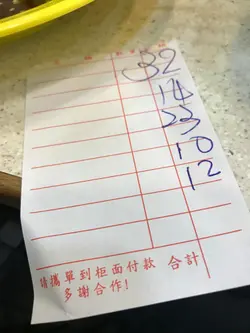 32
14
23
10
12
請攜單到柜面付款 合計
多謝合作!